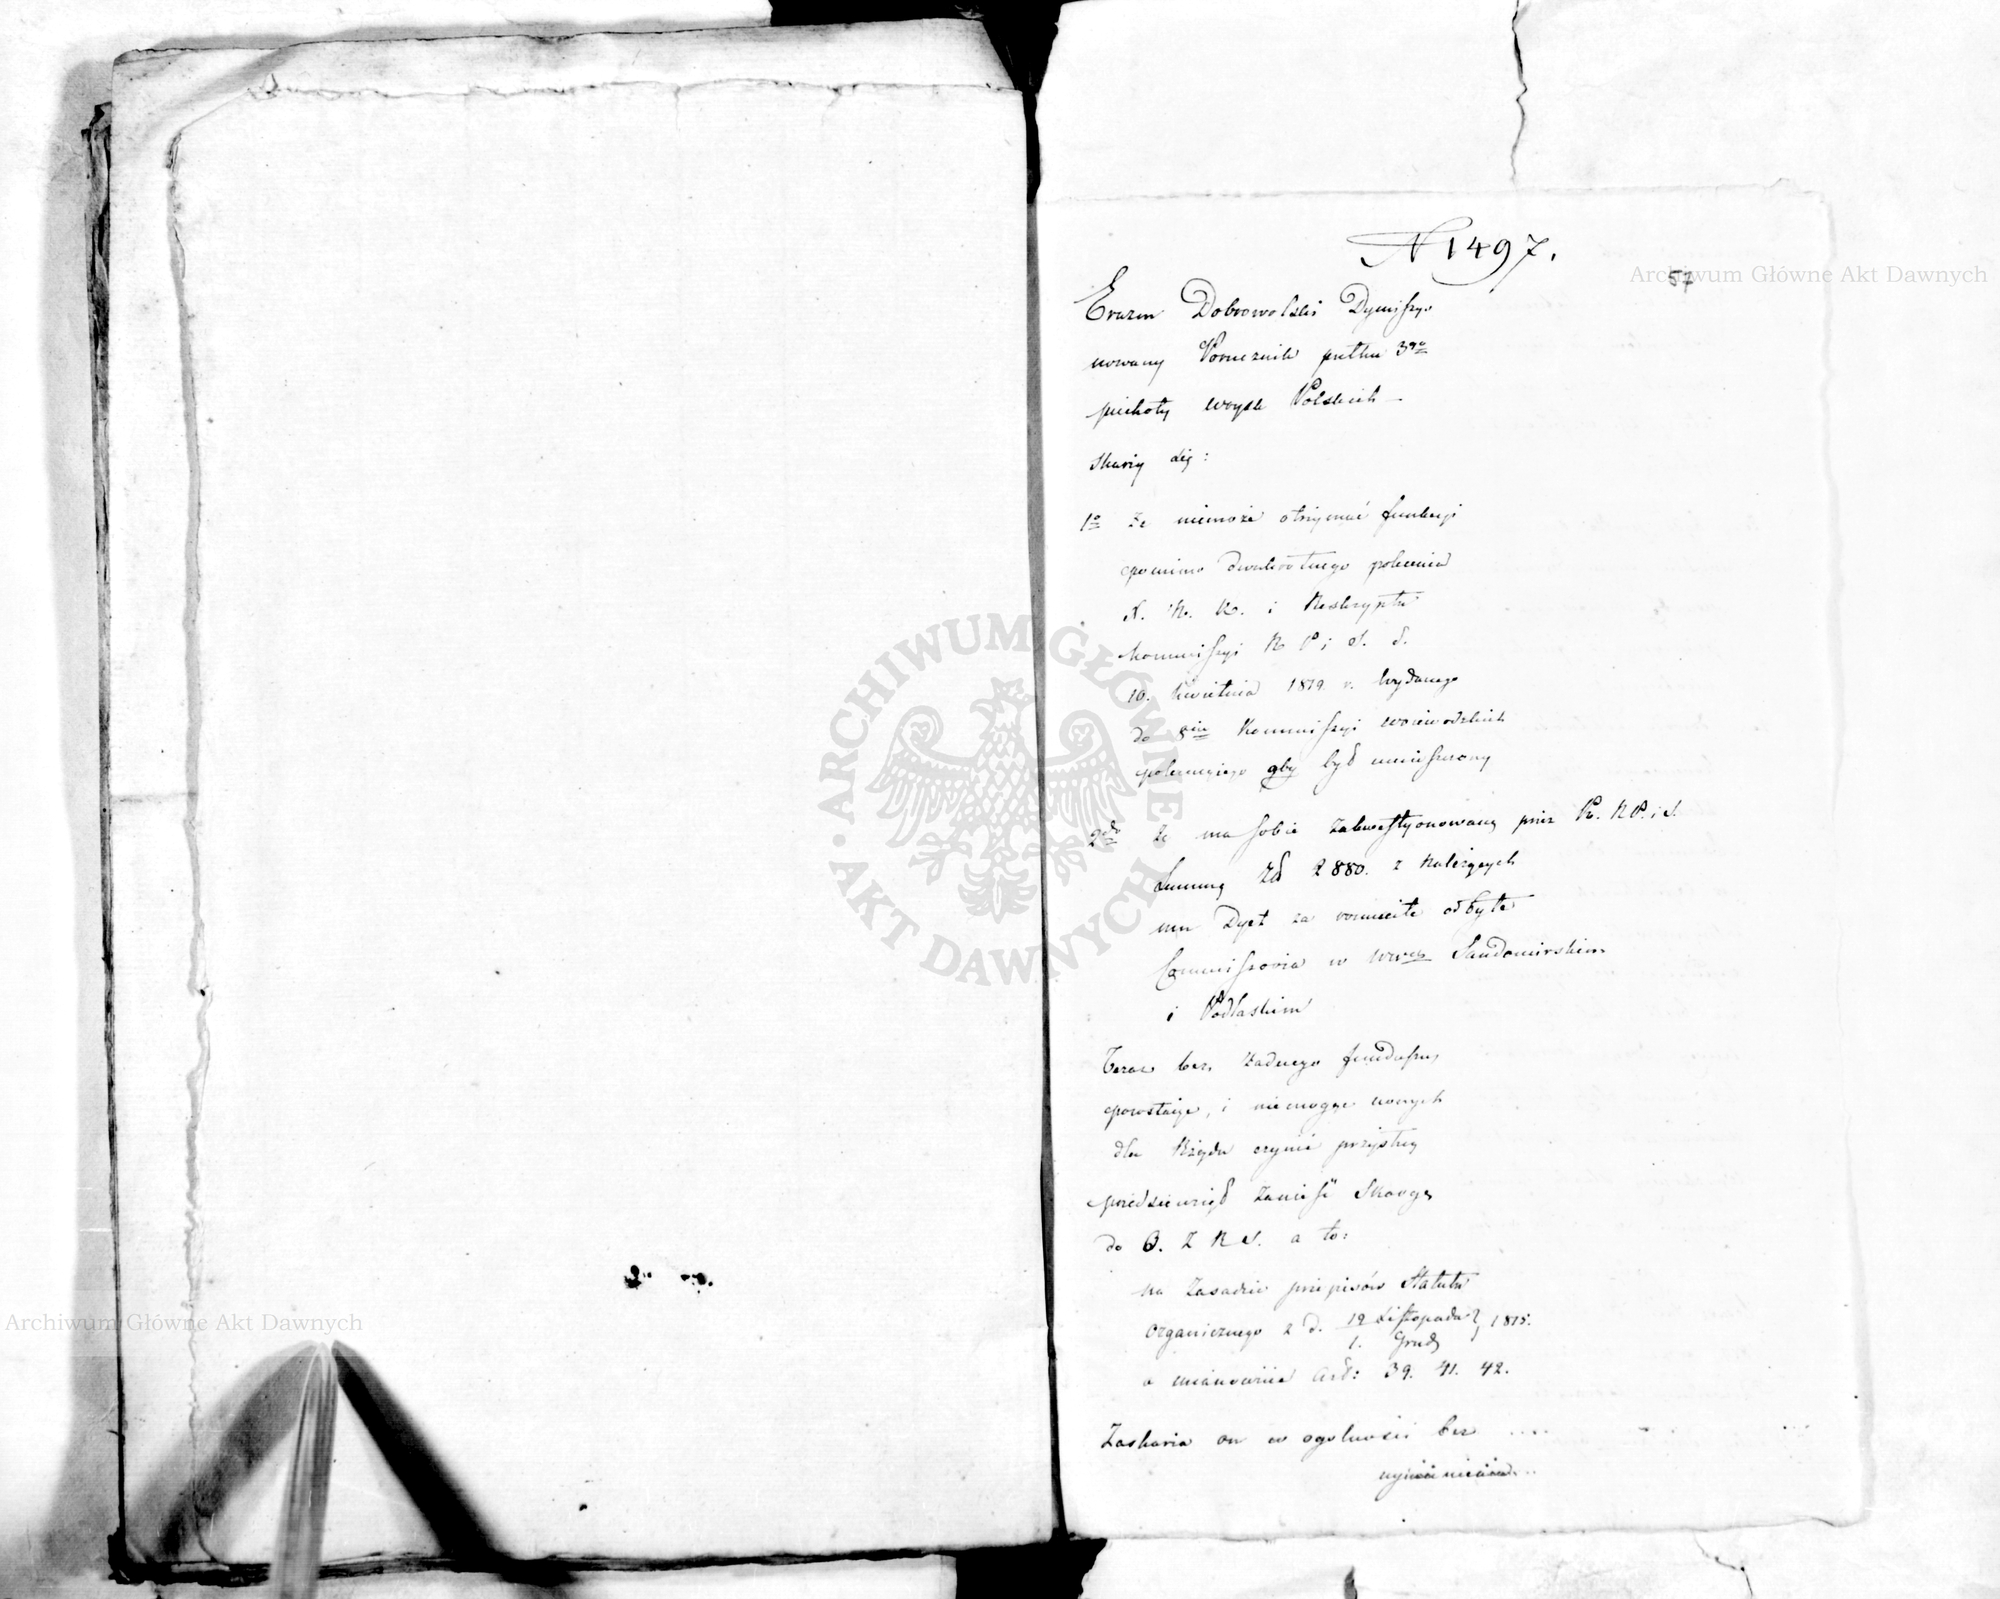 N 1497.
57
Erazm Dobrowolski Dymissyo
nowany Porucznik pułku 3go
piechoty woysk Polskich —
Skarży się:
1o Że niemoże otrzymać funkcyi
pomimo dwukrotnego polecenia
X. N. K. i Reskryptu
Kommissyi R P i S.
10. Kwietnia 1819 r. wydanego
do 8iu Kommissyi woiewodzkich
polecaiącego aby był umieszczony
2do Że ma sobie zakwestyonowaną przez K. R P. i S.
Summę Zł 2880. z należących
mu Dyet za rozmaite odbyte
Commissoria w wwach Sandomirskim
i Podlaskim
Teraz bez żadnego funduszu
pozostaiąc, i niemogąc nowych
dla Rządu czynić przysług
przedsięwziął zanieść Skargę
do O. Z R S. a to:
na Zasadzie przepisów Statutu
Organicznego z d. 19 Listopada / 1. Grud } 1815.
a mianowicie Art: 39. 41. 42.
Zaskarża on w ogólności bez ....
ARCHIWUM GŁÓWNE AKT DAWNYCH
Archiwum Główne Akt Dawnych
Archiwum Główne Akt Dawnych